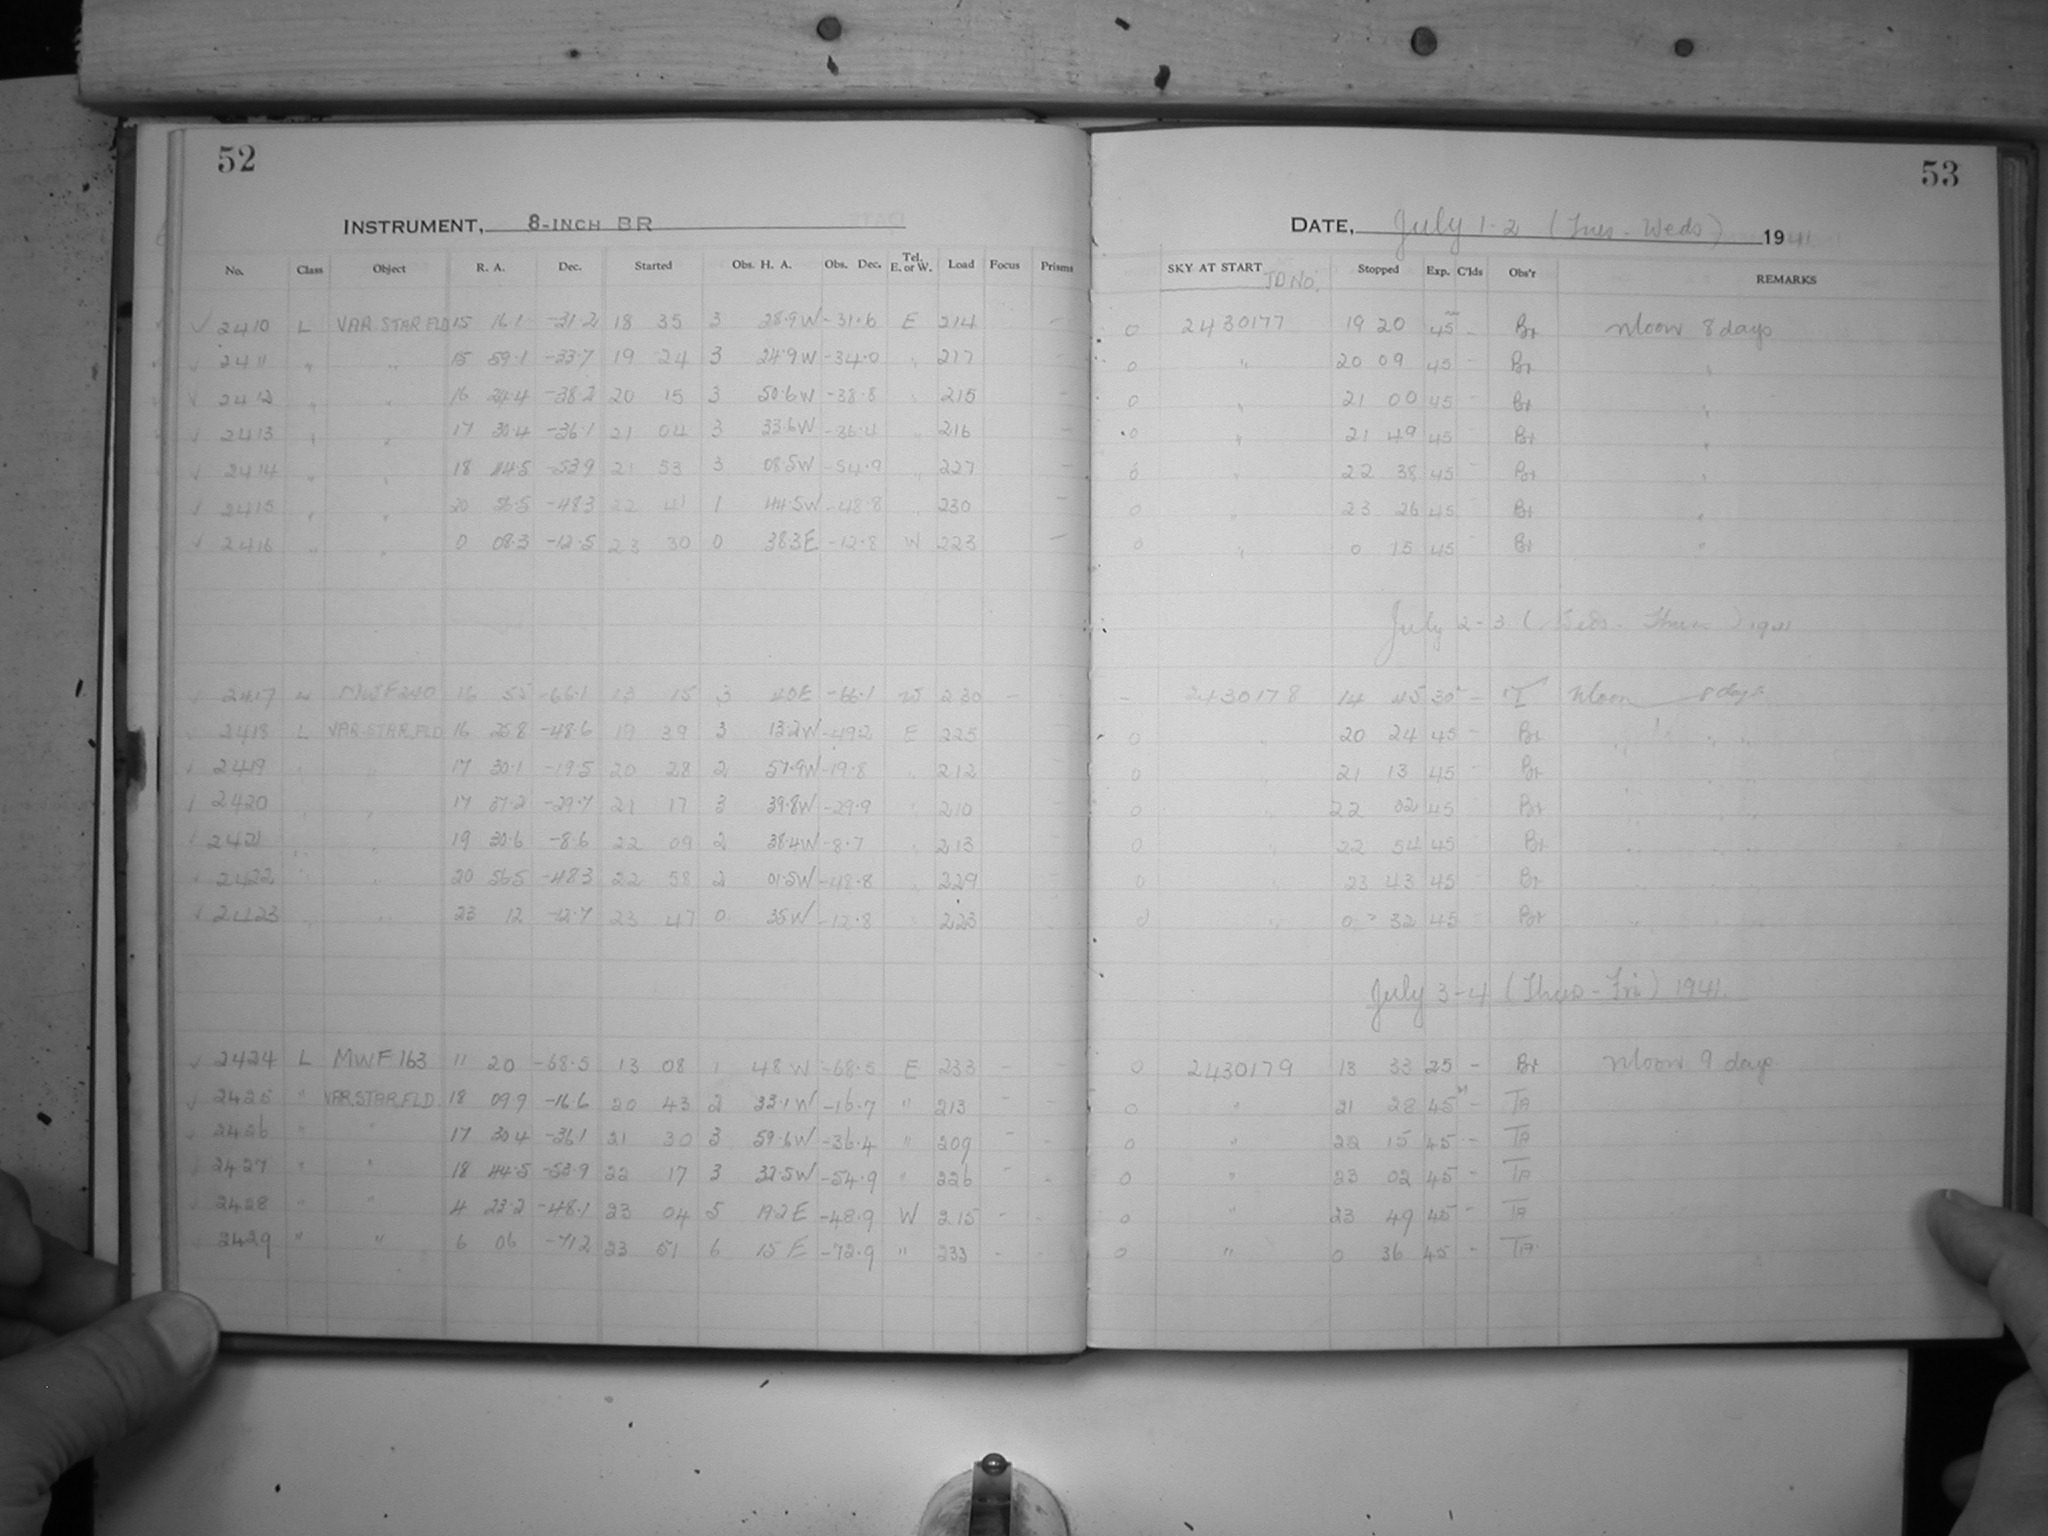 52
INSTRUMENT, 8-INCH BR
No. Class Object R. A. Dec. Started Obs. H. A. Obs. Dec. Tel. E. or W. Load Focus Prisms
✓ 2410 L VAR.STAR.FLD 15 16.1 -31.2 18 35 3 28.9W -31.6 E 214 -
✓ 2411 " " 15 59.1 -33.7 19 24 3 24.9W -34.0 " 217 -
✓ 2412 " " 16 24.4 -38.2 20 15 3 50.6W -38.8 " 215 -
✓ 2413 " " 17 30.4 -36.1 21 04 3 33.6W -36.4 " 216 -
✓ 2414 " " 18 44.5 -53.9 21 53 3 08.5W -54.9 " 227 -
✓ 2415 " " 20 56.5 -48.3 22 41 1 44.5W -48.8 " 230 -
✓ 2416 " " 0 08.3 -12.5 23 30 0 38.3E -12.8 W 223 -
✓ 2417 MWF240 16 55 -66.1 13 15 3 40E -66.1 W 230 -
✓ 2418 L VAR.STAR.FLD 16 25.8 -48.6 19 39 3 13.2W -49.2 E 225
✓ 2419 " " 17 30.1 -19.5 20 28 2 57.9W -19.8 " 212
✓ 2420 " " 17 37.2 -29.7 21 17 3 39.8W -29.9 " 210
✓ 2421 " " 19 30.6 -8.6 22 09 2 38.4W -8.7 " 213
✓ 2422 " " 20 56.5 -48.3 22 58 2 01.5W -48.8 " 229
✓ 2423 " " 23 12 -12.7 23 47 0 35W -12.8 " 223
✓ 2424 L MWF163 11 20 -68.5 13 08 1 48W -68.5 E 233 - -
✓ 2425 " VAR.STAR.FLD 18 09.9 -16.6 20 43 2 33.1W -16.7 " 213 - -
✓ 2426 " " 17 30.4 -36.1 21 30 3 59.6W -36.4 " 209 - -
2427 " " 18 44.5 -53.9 22 17 3 32.5W -54.9 " 226 - -
2428 " " 4 23.2 -48.1 23 04 5 19.2E -48.9 W 215 - -
2429 " " 6 06 -71.2 23 51 6 15E -72.9 " 233 - -
53
DATE, July 1-2 (Tues-Weds) 1941
SKY AT START JD No. Stopped Exp. C'lds Obs'r REMARKS
0 2430177 19 20 45 - Br Moon 8 days
0 " 20 09 45 - Br "
0 " 21 00 45 - Br "
0 " 21 49 45 - Br "
0 " 22 38 45 - Br "
0 " 23 26 45 - Br "
0 " 0 15 45 - Br "
July 2-3 (Weds-Thurs) 1941
- 2430178 14 45 30 - Moon 8 days
0 " 20 24 45 - Br " "
0 " 21 13 45 - Br
0 " 22 02 45 Br
0 " 22 54 45 Br
0 " 23 43 45 Br
0 " 0 32 45 Br
July 3-4 (Thurs-Fri) 1941.
0 2430179 13 33 25 - Br Moon 9 days
0 " 21 28 45 - TA
0 " 22 15 45 - TA
0 " 23 02 45 - TA
0 " 23 49 45 - TA
0 " 0 36 45 " TA